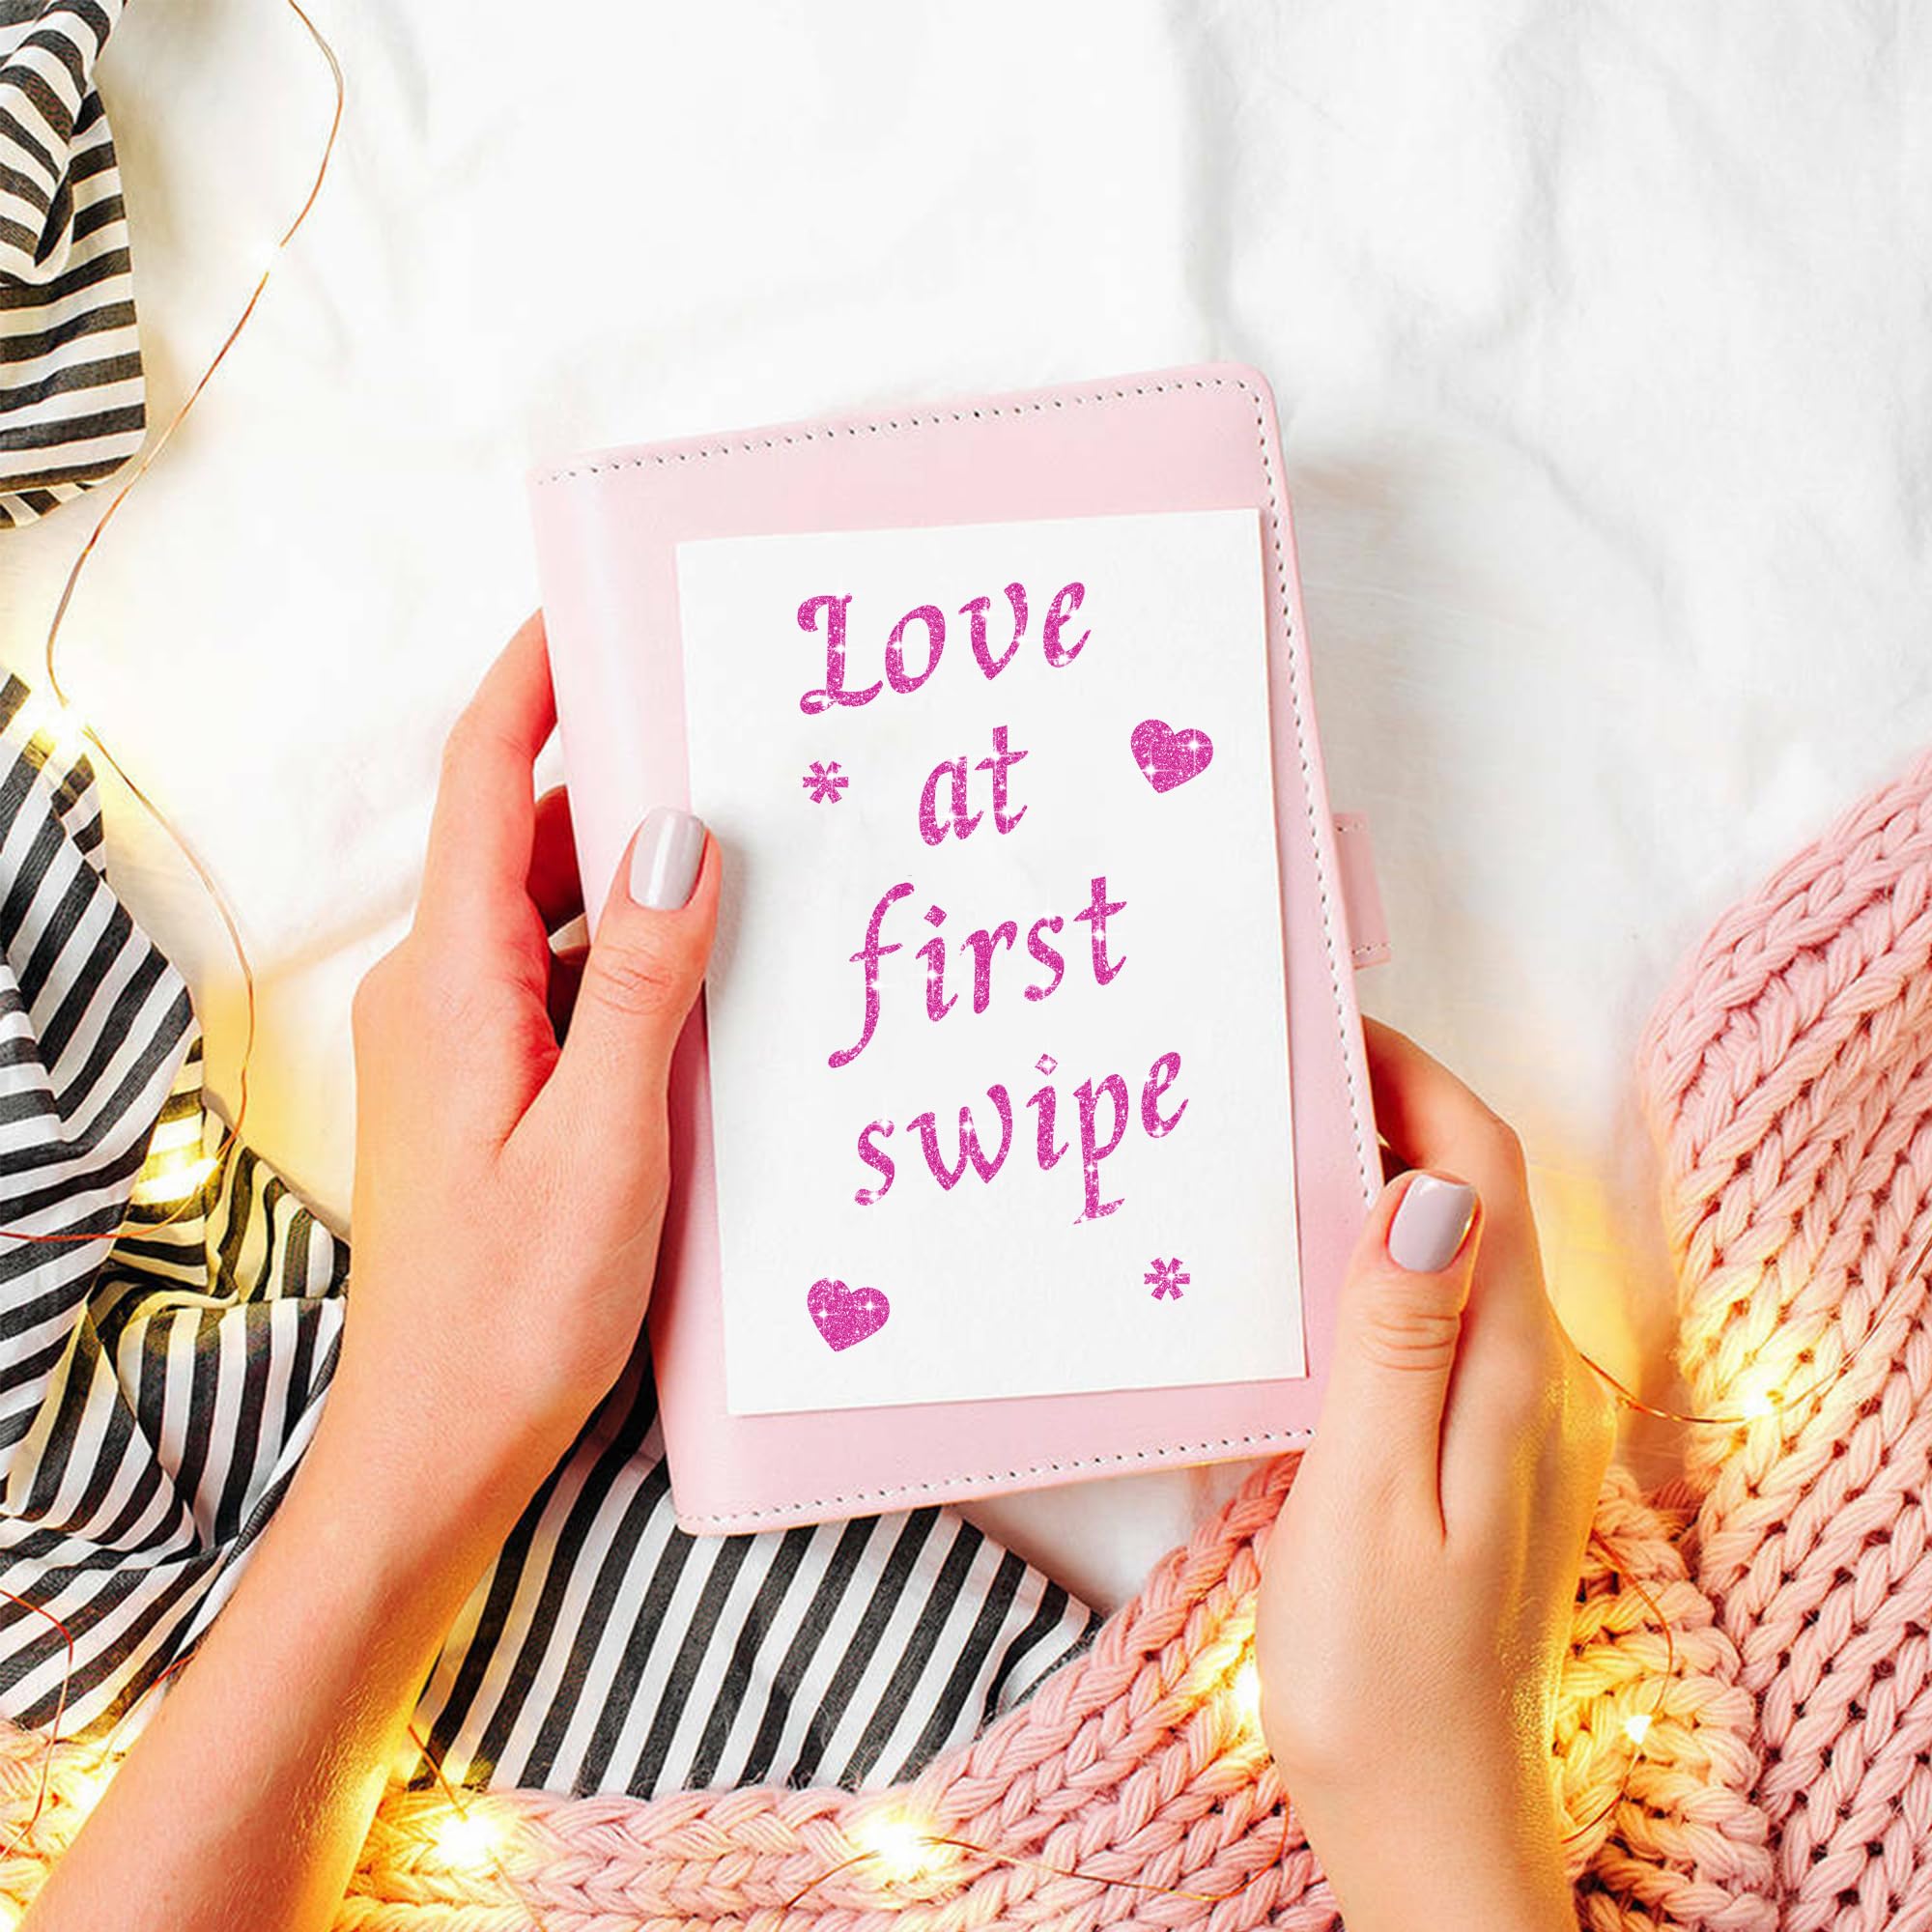 Love
* at
first
swipe
*